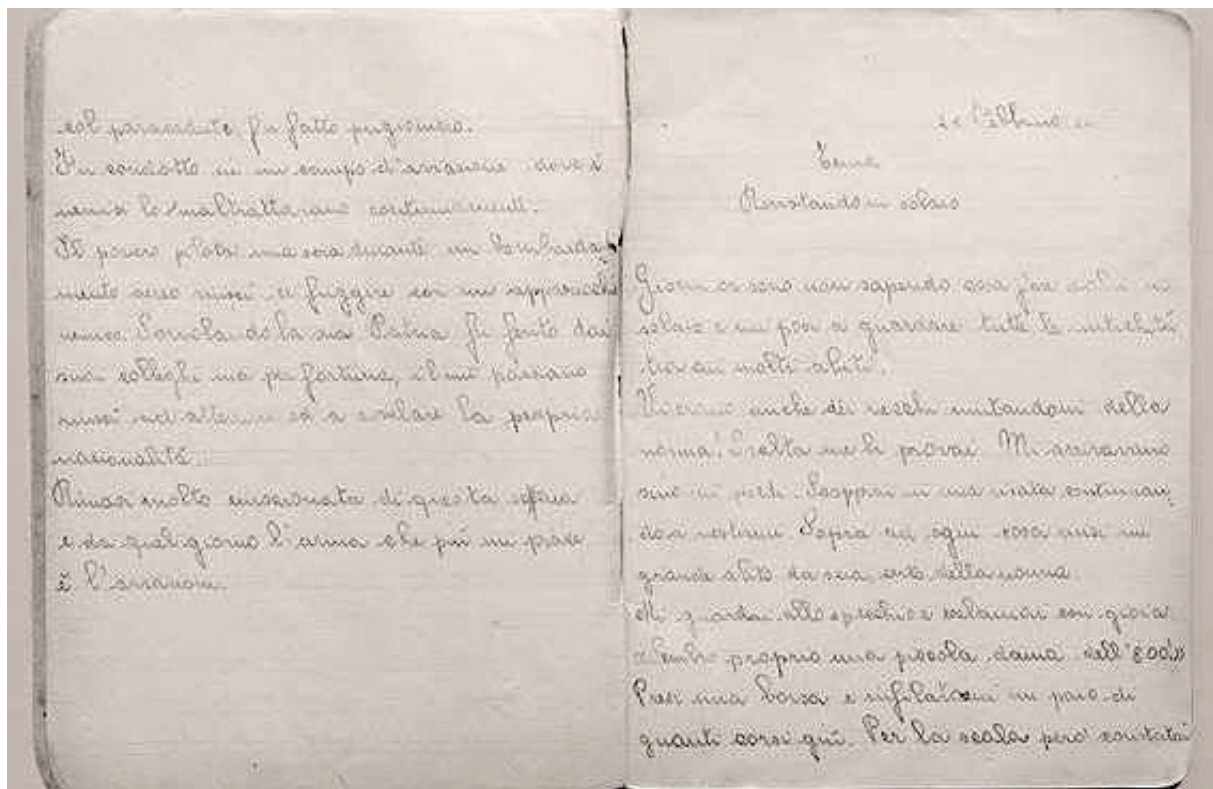 col paracadute fu fatto prigioniero.
Fu condotto in un campo d'aviazione dove i
nemici lo maltrattarono continuamente.
Il povero pilota una sera durante un bombarda-
mento aereo riuscì a fuggire con un apparecchio
nemico. Sorvolando la sua Patria fu ferito dai
suoi colleghi ma per fortuna, il mio paesano
riuscì ad atterrare ed a svelare la propria
nazionalità.
Rimasi molto emozionata di questa
e da quel giorno l'arma che più mi piace
è l'aviazione.
Febbraio
Tema
Rovistando in solaio
Giorni or sono non sapendo cosa fare salii in
solaio e mi posi a guardare tutte le antichità
trovai molti abiti.
Vi erano anche dei vecchi mutandoni della
nonna! Svelta me li provai. Mi arrivarono
sino ai piedi. Scoppiai in una risata continuan-
do a vestirmi. Sopra ad ogni cosa misi un
grande abito da sera, certo della nonna.
Mi guardai allo specchio e esclamai con gioia
sembro proprio una piccola dama dell'800!»
Presi una borsa e infilatomi un paio di
guanti corsi giù. Per la scala però constatai